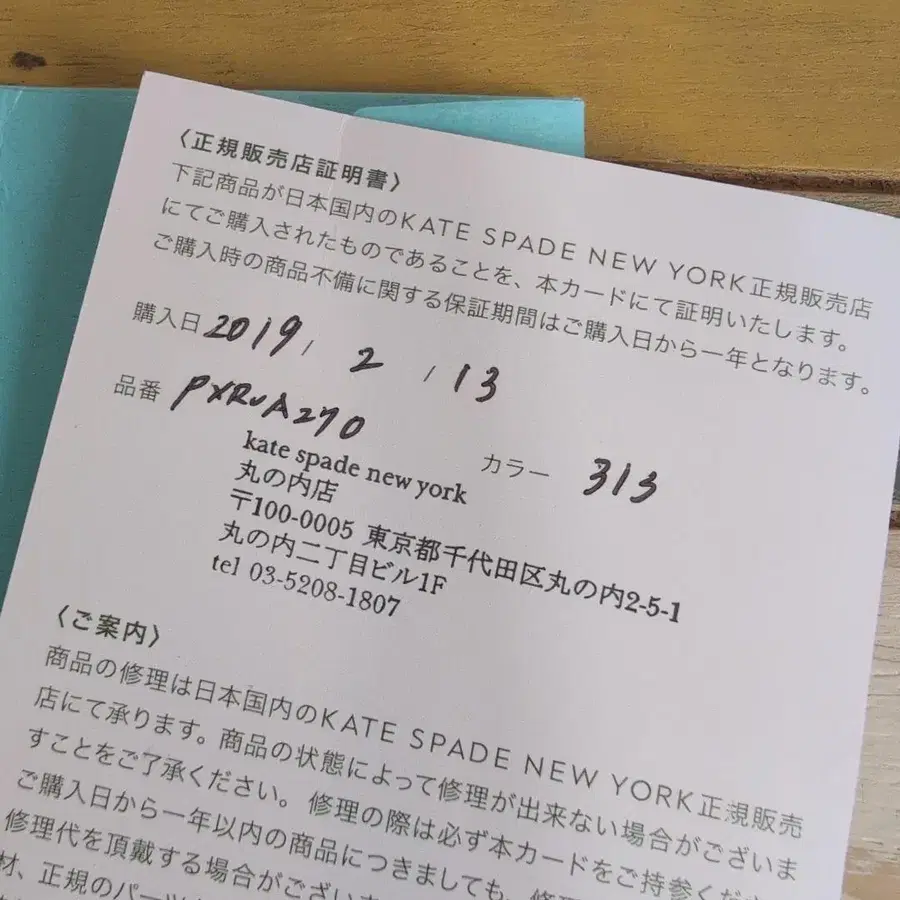 〈正規販売店証明書〉
下記商品が日本国内のKATE SPADE NEW YORK正規販売店
にてご購入されたものであることを、本カードにて証明いたします。
ご購入時の商品不備に関する保証期間はご購入日から一年となります。
購入日 2019 / 2 / 13
品番 PXRUA270 カラー 313
kate spade new york
丸の内店
〒100-0005 東京都千代田区丸の内2-5-1
丸の内二丁目ビル1F
tel 03-5208-1807
〈ご案内〉
商品の修理は日本国内のKATE SPADE NEW YORK正規販売
店にて承ります。商品の状態によって修理が出来ない場合がございま
すことをご了承ください。修理の際は必ず本カードをご持参くださ
ご購入日から一年以内の商品につきましても、修
修理代を頂戴する場合がござい
材、正規のパーツ